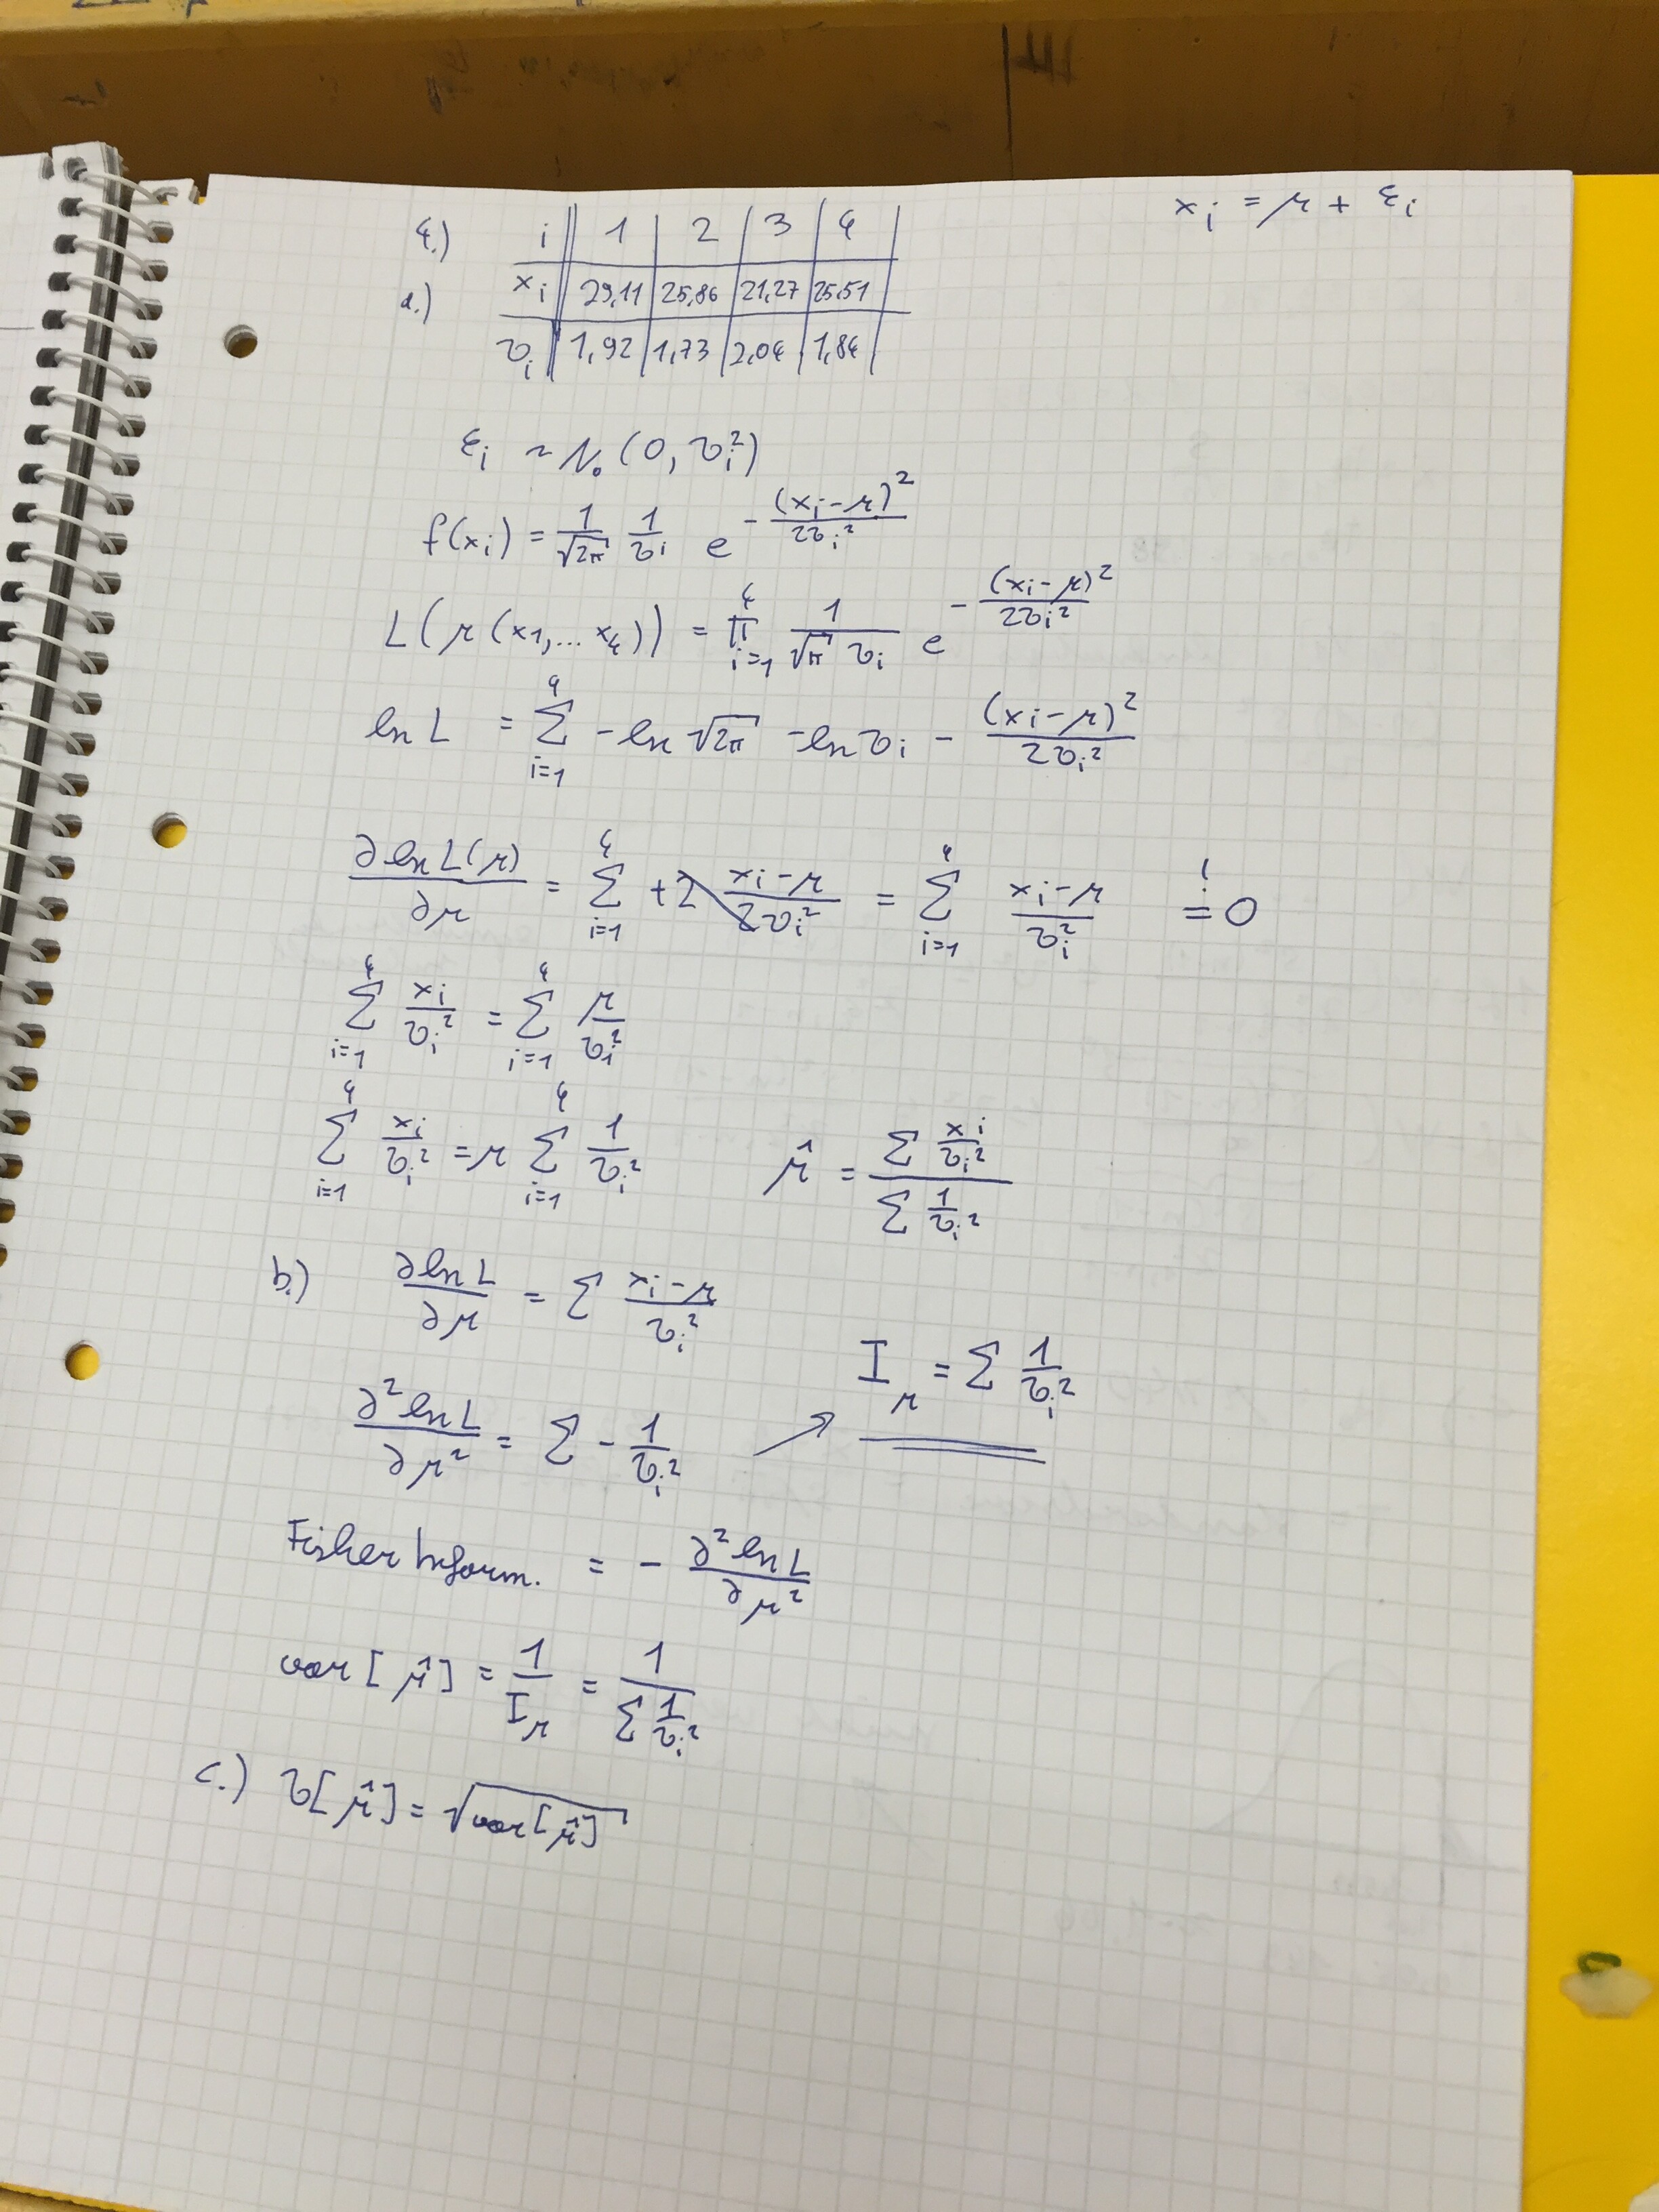 x_i = μ + ε_i
4.) i 1 2 3 4
a.) x_i 29,11 25,86 21,27 25,51
σ_i 1,92 1,73 2,04 1,84
ε_i ~ N. (0, σ_i²)
f(x_i) = 1/√2π 1/σ_i e^{-(x_i-μ)²/2σ_i²}
L(μ(x_1,...x_4)) = ∏_{i=1}^{4} 1/(√π σ_i) e^{-(x_i-μ)²/2σ_i²}
ln L = ∑_{i=1}^{4} -ln √2π -ln σ_i - (x_i-μ)²/2σ_i²
∂ ln L(μ)/∂μ = ∑_{i=1}^{4} +2 (x_i-μ)/2σ_i² = ∑_{i=1}^{4} (x_i-μ)/σ_i² != 0
∑_{i=1}^{4} x_i/σ_i² = ∑_{i=1}^{4} μ/σ_i²
∑_{i=1}^{4} x_i/σ_i² = μ ∑_{i=1}^{4} 1/σ_i² μ̂ = (∑ x_i/σ_i²)/(∑ 1/σ_i²)
b.) ∂ ln L/∂μ = ∑ (x_i-μ)/σ_i²
∂² ln L/∂μ² = ∑ - 1/σ_i² ↗ I_μ = ∑ 1/σ_i²
Fisher Inform. = - ∂² ln L/∂μ²
var[μ̂] = 1/I_μ = 1/(∑ 1/σ_i²)
c.) σ[μ̂] = √var[μ̂]